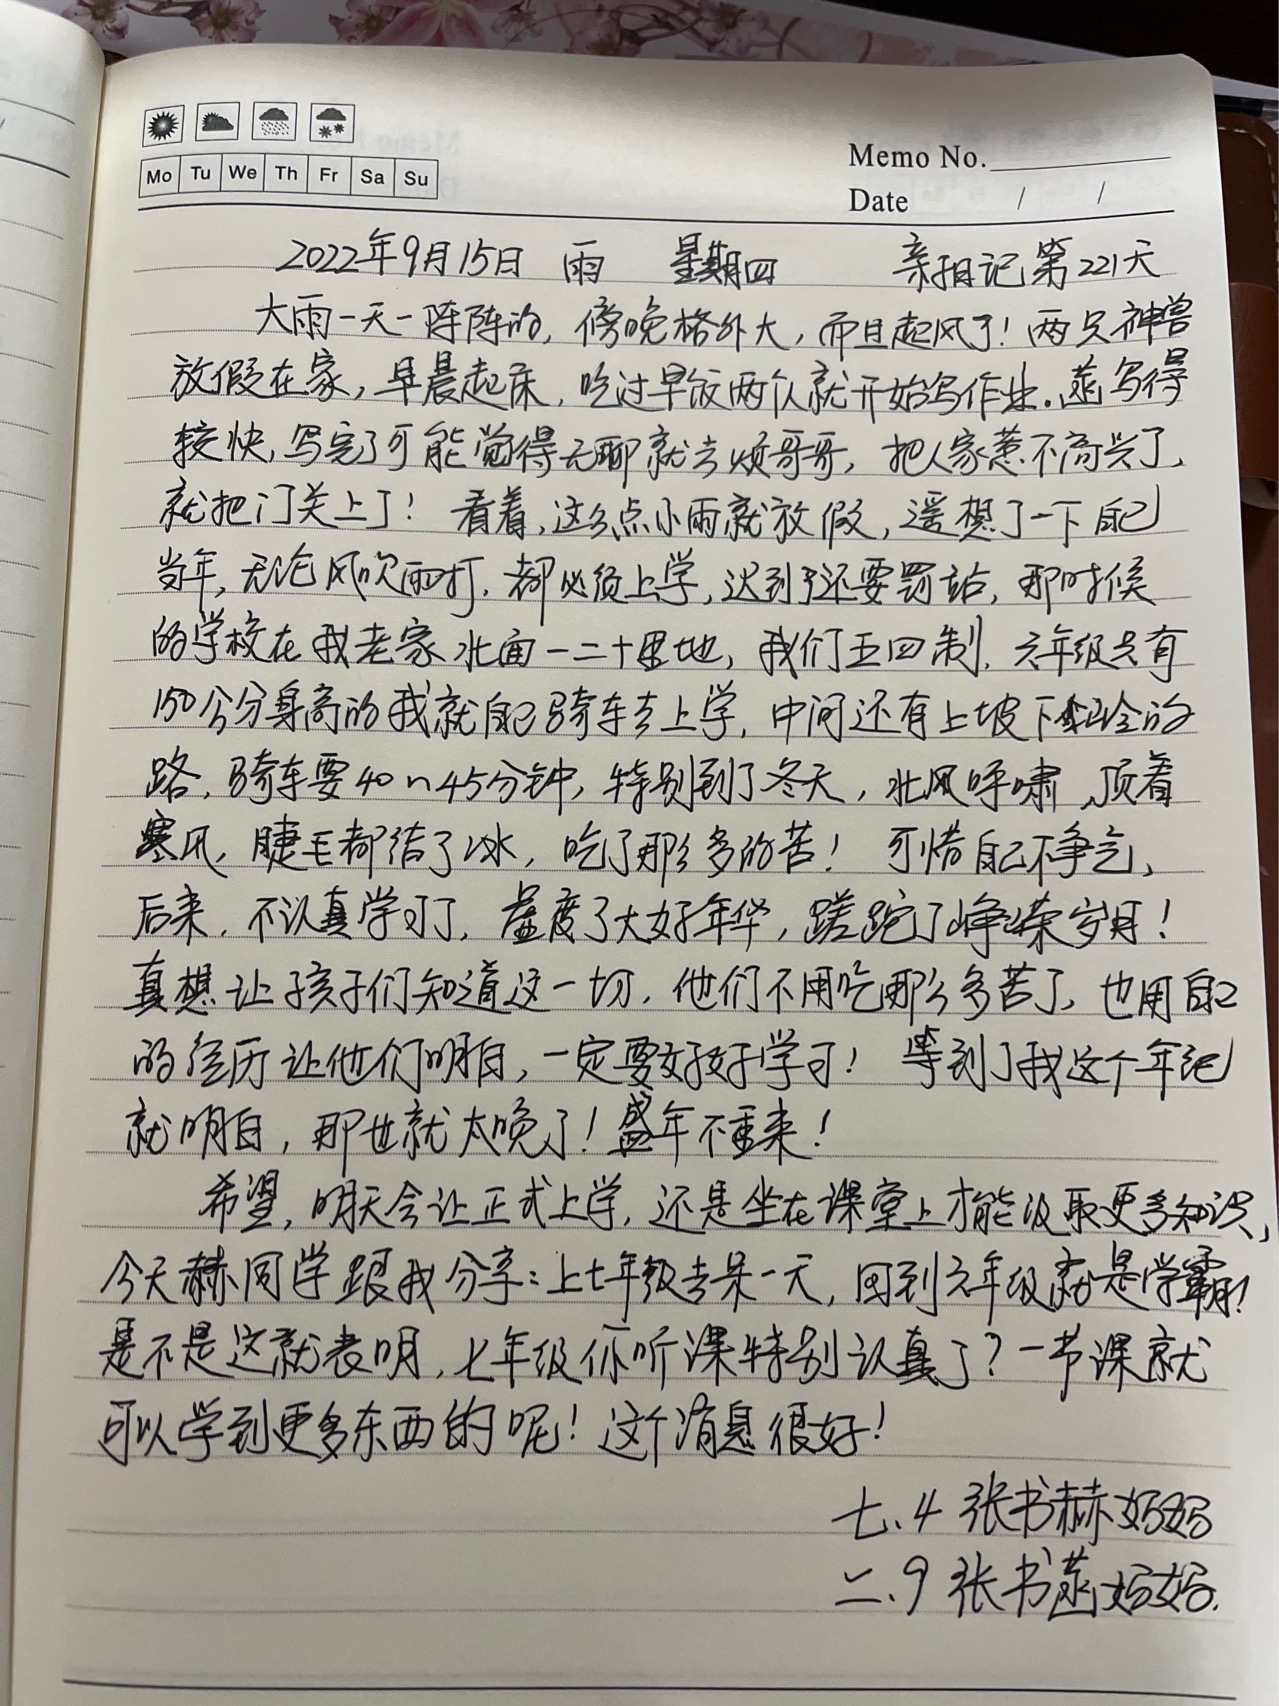 Mo Tu We Th Fr Sa Su
Memo No.
Date / /
2022年9月15日 雨 星期四 亲子日记第221天
大雨一天一阵阵的，傍晚格外大，而且起风了！两只神兽
放假在家，早晨起床，吃过早饭两个人就开始写作业．菡写得
较快，写完了可能觉得无聊就去烦哥哥，把人家惹不高兴了，
就把门关上了！看着，这么点小雨就放假，遥想了一下自己
当年，无论风吹雨打，都必须上学，迟到了还要罚站，那时候
的学校在我老家北面一二十里地，我们五四制，六年级只有
150公分身高的我就自己骑车去上学，中间还有上坡下岭的
路，骑车要40~45分钟，特别到了冬天，北风呼啸，顶着
寒风，睫毛都结了冰，吃了那么多的苦！可惜自己不争气，
后来，不认真学习了，虚度了大好年华，蹉跎了峥嵘岁月！
真想让孩子们知道这一切，他们不用吃那么多苦了，也用自己
的经历让他们明白，一定要好好学习！等到了我这个年纪
就明白，那也就太晚了！盛年不重来！
希望，明天会让正式上学，还是坐在课堂上才能汲取更多知识，
今天赫同学跟我分享：上七年级去呆一天，回到六年级就是学霸！
是不是这就表明，七年级你听课特别认真了？一节课就
可以学到更多东西的呢！这个消息很好！
七.4 张书赫妈妈
二.9 张书菡妈妈.